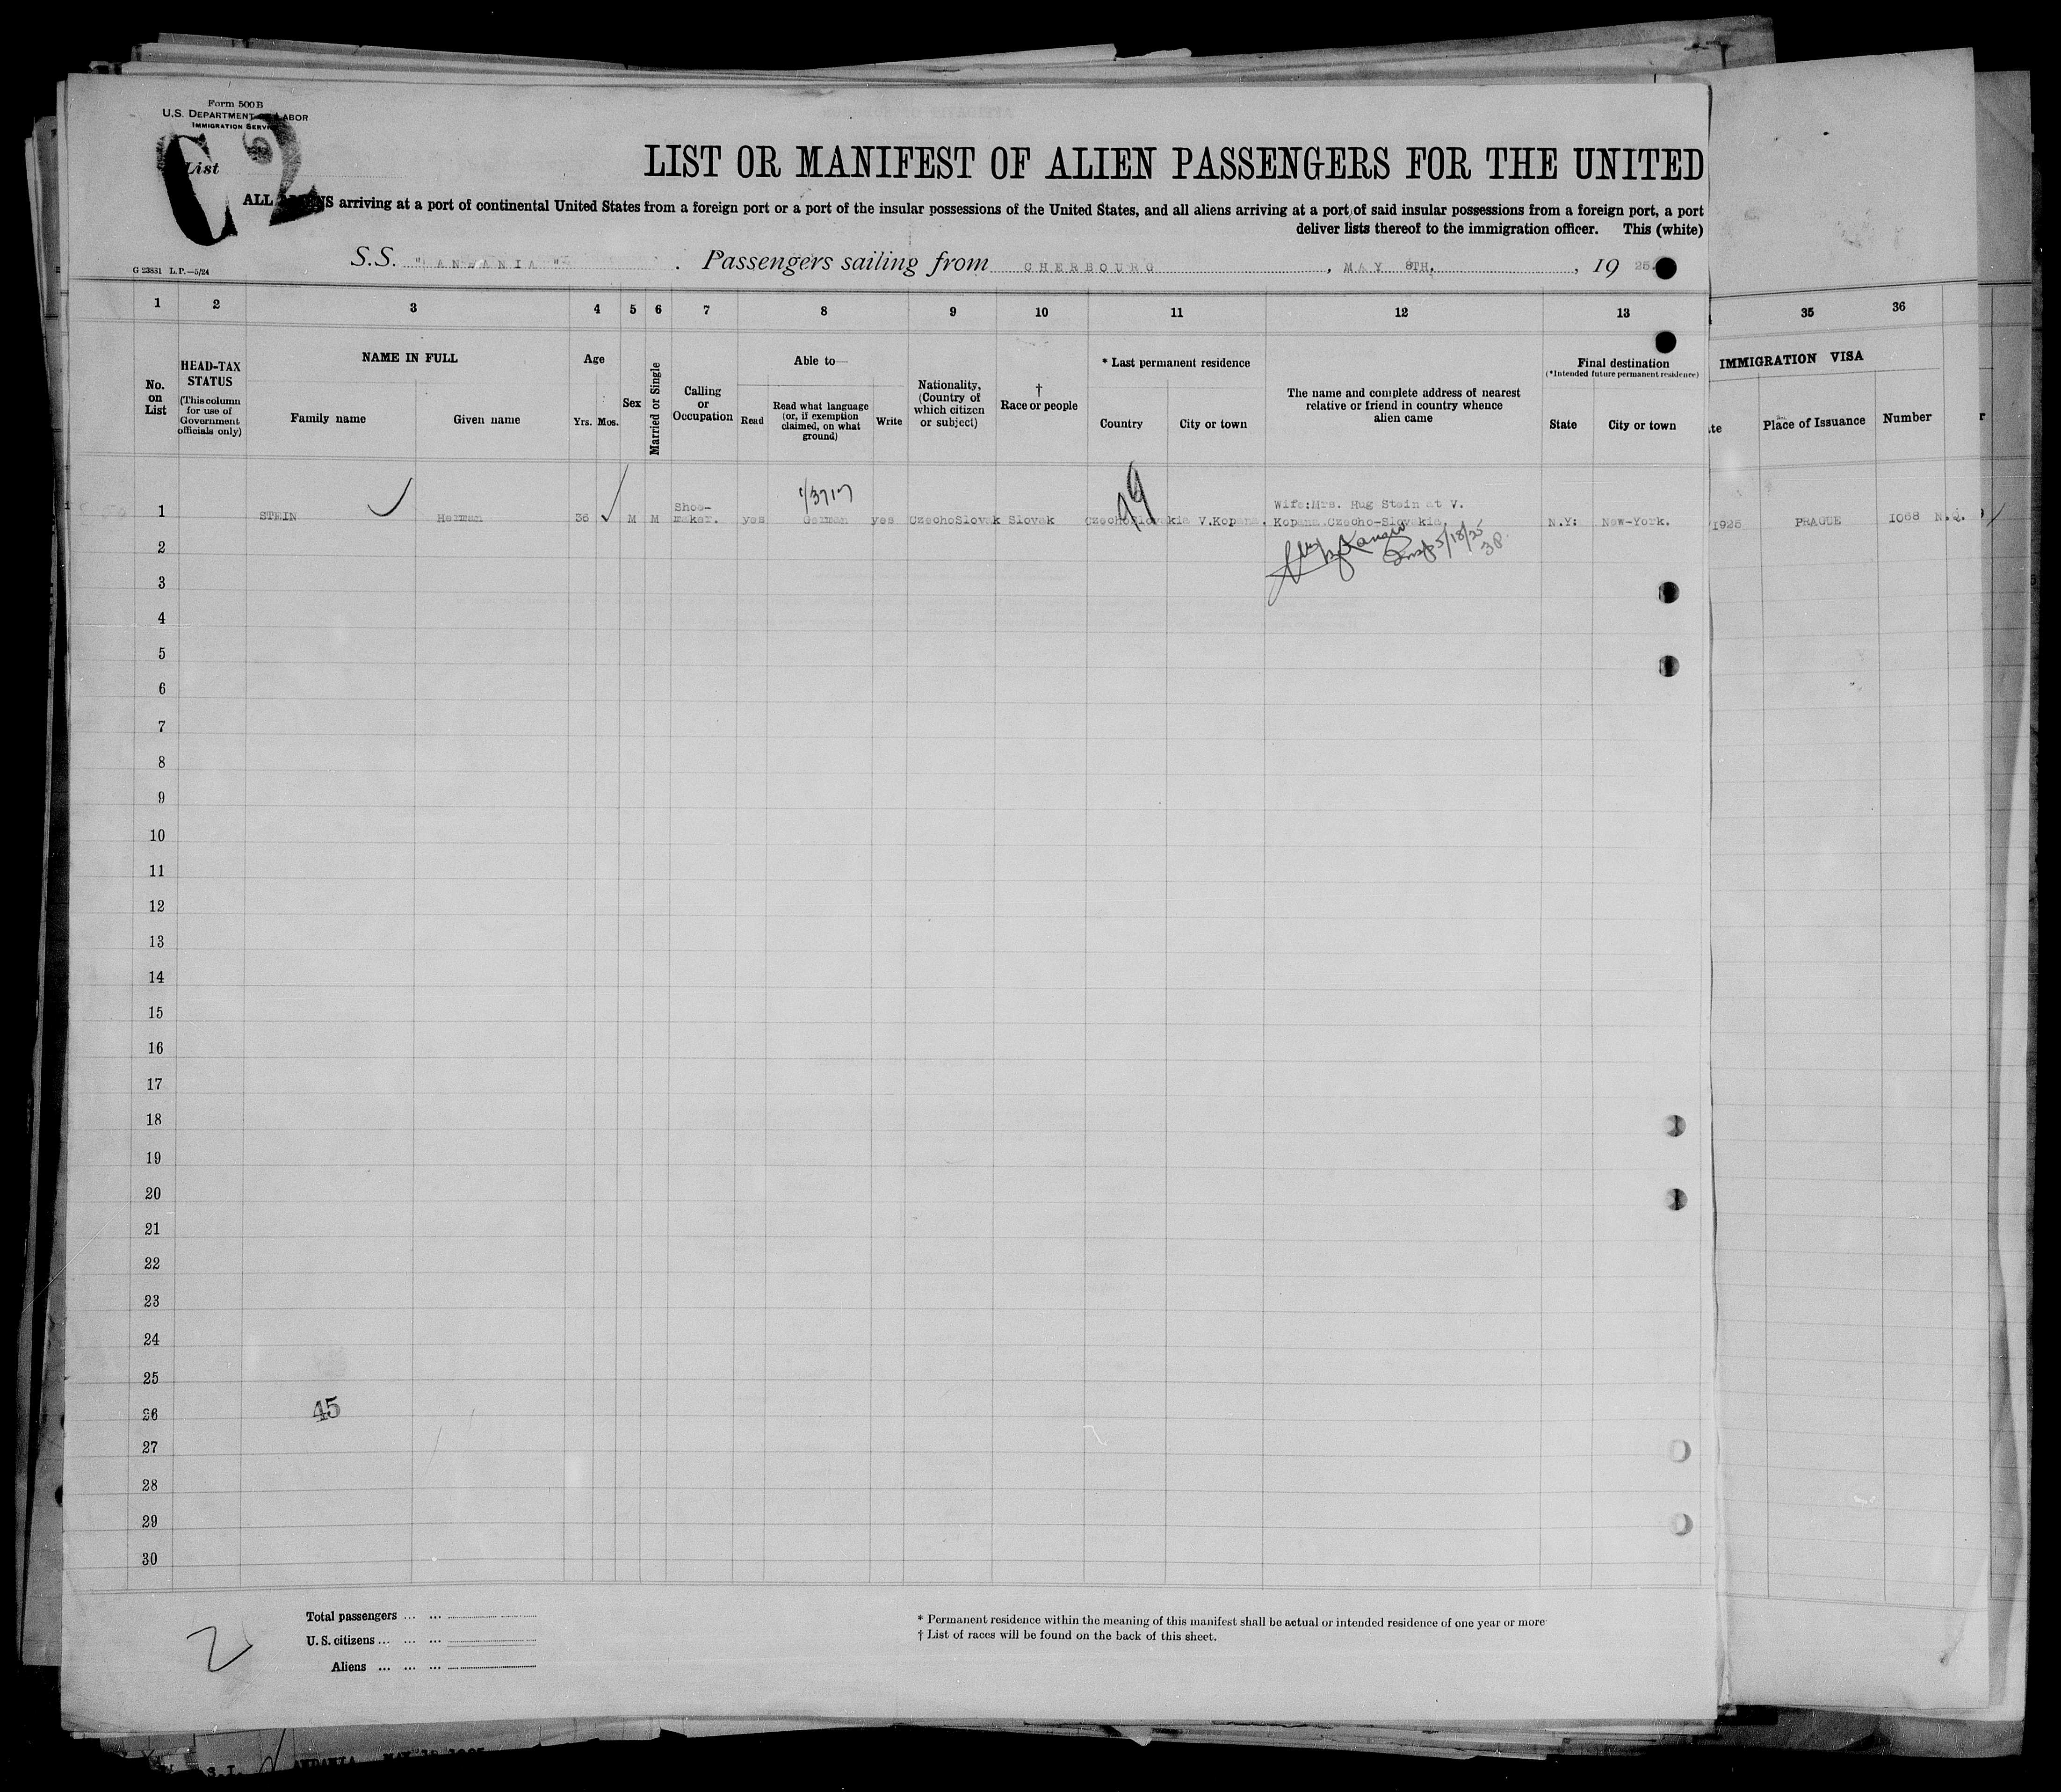 Form 500 B
U.S. DEPARTMENT LABOR
IMMIGRATION SERVICE
List
C2
LIST OR MANIFEST OF ALIEN PASSENGERS FOR THE UNITED
ALL ALIENS arriving at a port of continental United States from a foreign port or a port of the insular possessions of the United States, and all aliens arriving at a port of said insular possessions from a foreign port, a port
deliver lists thereof to the immigration officer. This (white)
S.S. "ANDANIA" . Passengers sailing from CHERBOURG , MAY 8TH. , 19 25.
G 23831 L.P.—5/24
1 2 3 4 5 6 7 8 9 10 11 12 13 35 36
No. on List
HEAD-TAX STATUS (This column for use of Government officials only)
NAME IN FULL
Family name Given name
Age
Yrs. Mos.
Sex
Married or Single
Calling or Occupation
Able to—
Read
Read what language (or, if exemption claimed, on what ground)
Write
Nationality, (Country of which citizen or subject)
† Race or people
* Last permanent residence
Country City or town
The name and complete address of nearest relative or friend in country whence alien came
Final destination
(*Intended future permanent residence)
State City or town
IMMIGRATION VISA
te Place of Issuance Number
Wife:Mrs. Hug Stein at V.
1 STEIN Herman 36 M M Shoe-maker. yes German yes CzechoSlovak Slovak CzechoSlovakia V.Kopana. Kopana.Czecho-Slovakia. N.Y: New-York. /1925 PRAGUE 1068 N.Q.
99
5/18/25
38
2
3
4
5
6
7
8
9
10
11
12
13
14
15
16
17
18
19
20
21
22
23
24
25
26
45
27
28
29
30
Total passengers ... ...
U. S. citizens ... ... ...
Aliens ... ... ...
2
* Permanent residence within the meaning of this manifest shall be actual or intended residence of one year or more
† List of races will be found on the back of this sheet.